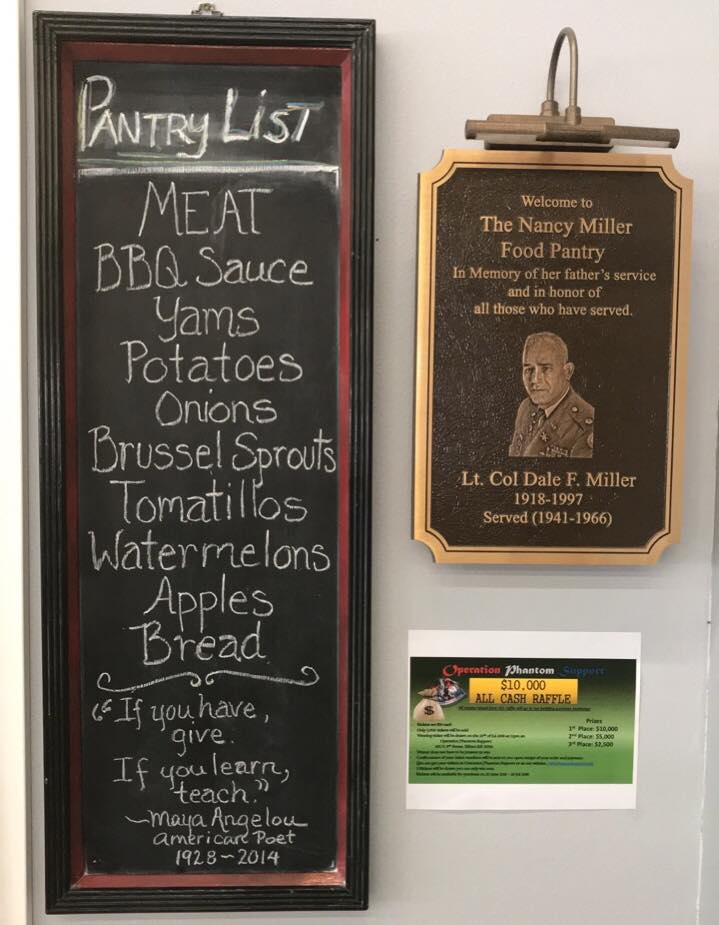 PANTRY LIST
MEAT
BBQ Sauce
Yams
Potatoes
Onions
Brussel Sprouts
Tomatillos
Watermelons
Apples
Bread
"If you have,
give.
If you learn,
teach."
~Maya Angelou
american Poet
1928~2014
Welcome to
The Nancy Miller
Food Pantry
In Memory of her father's service
and in honor of
all those who have served.
Lt. Col Dale F. Miller
1918-1997
Served (1941-1966)
Operation Phantom Support
$10,000
ALL CASH RAFFLE
$
Prizes
1st Place: $10,000
2nd Place: $5,000
3rd Place: $2,500